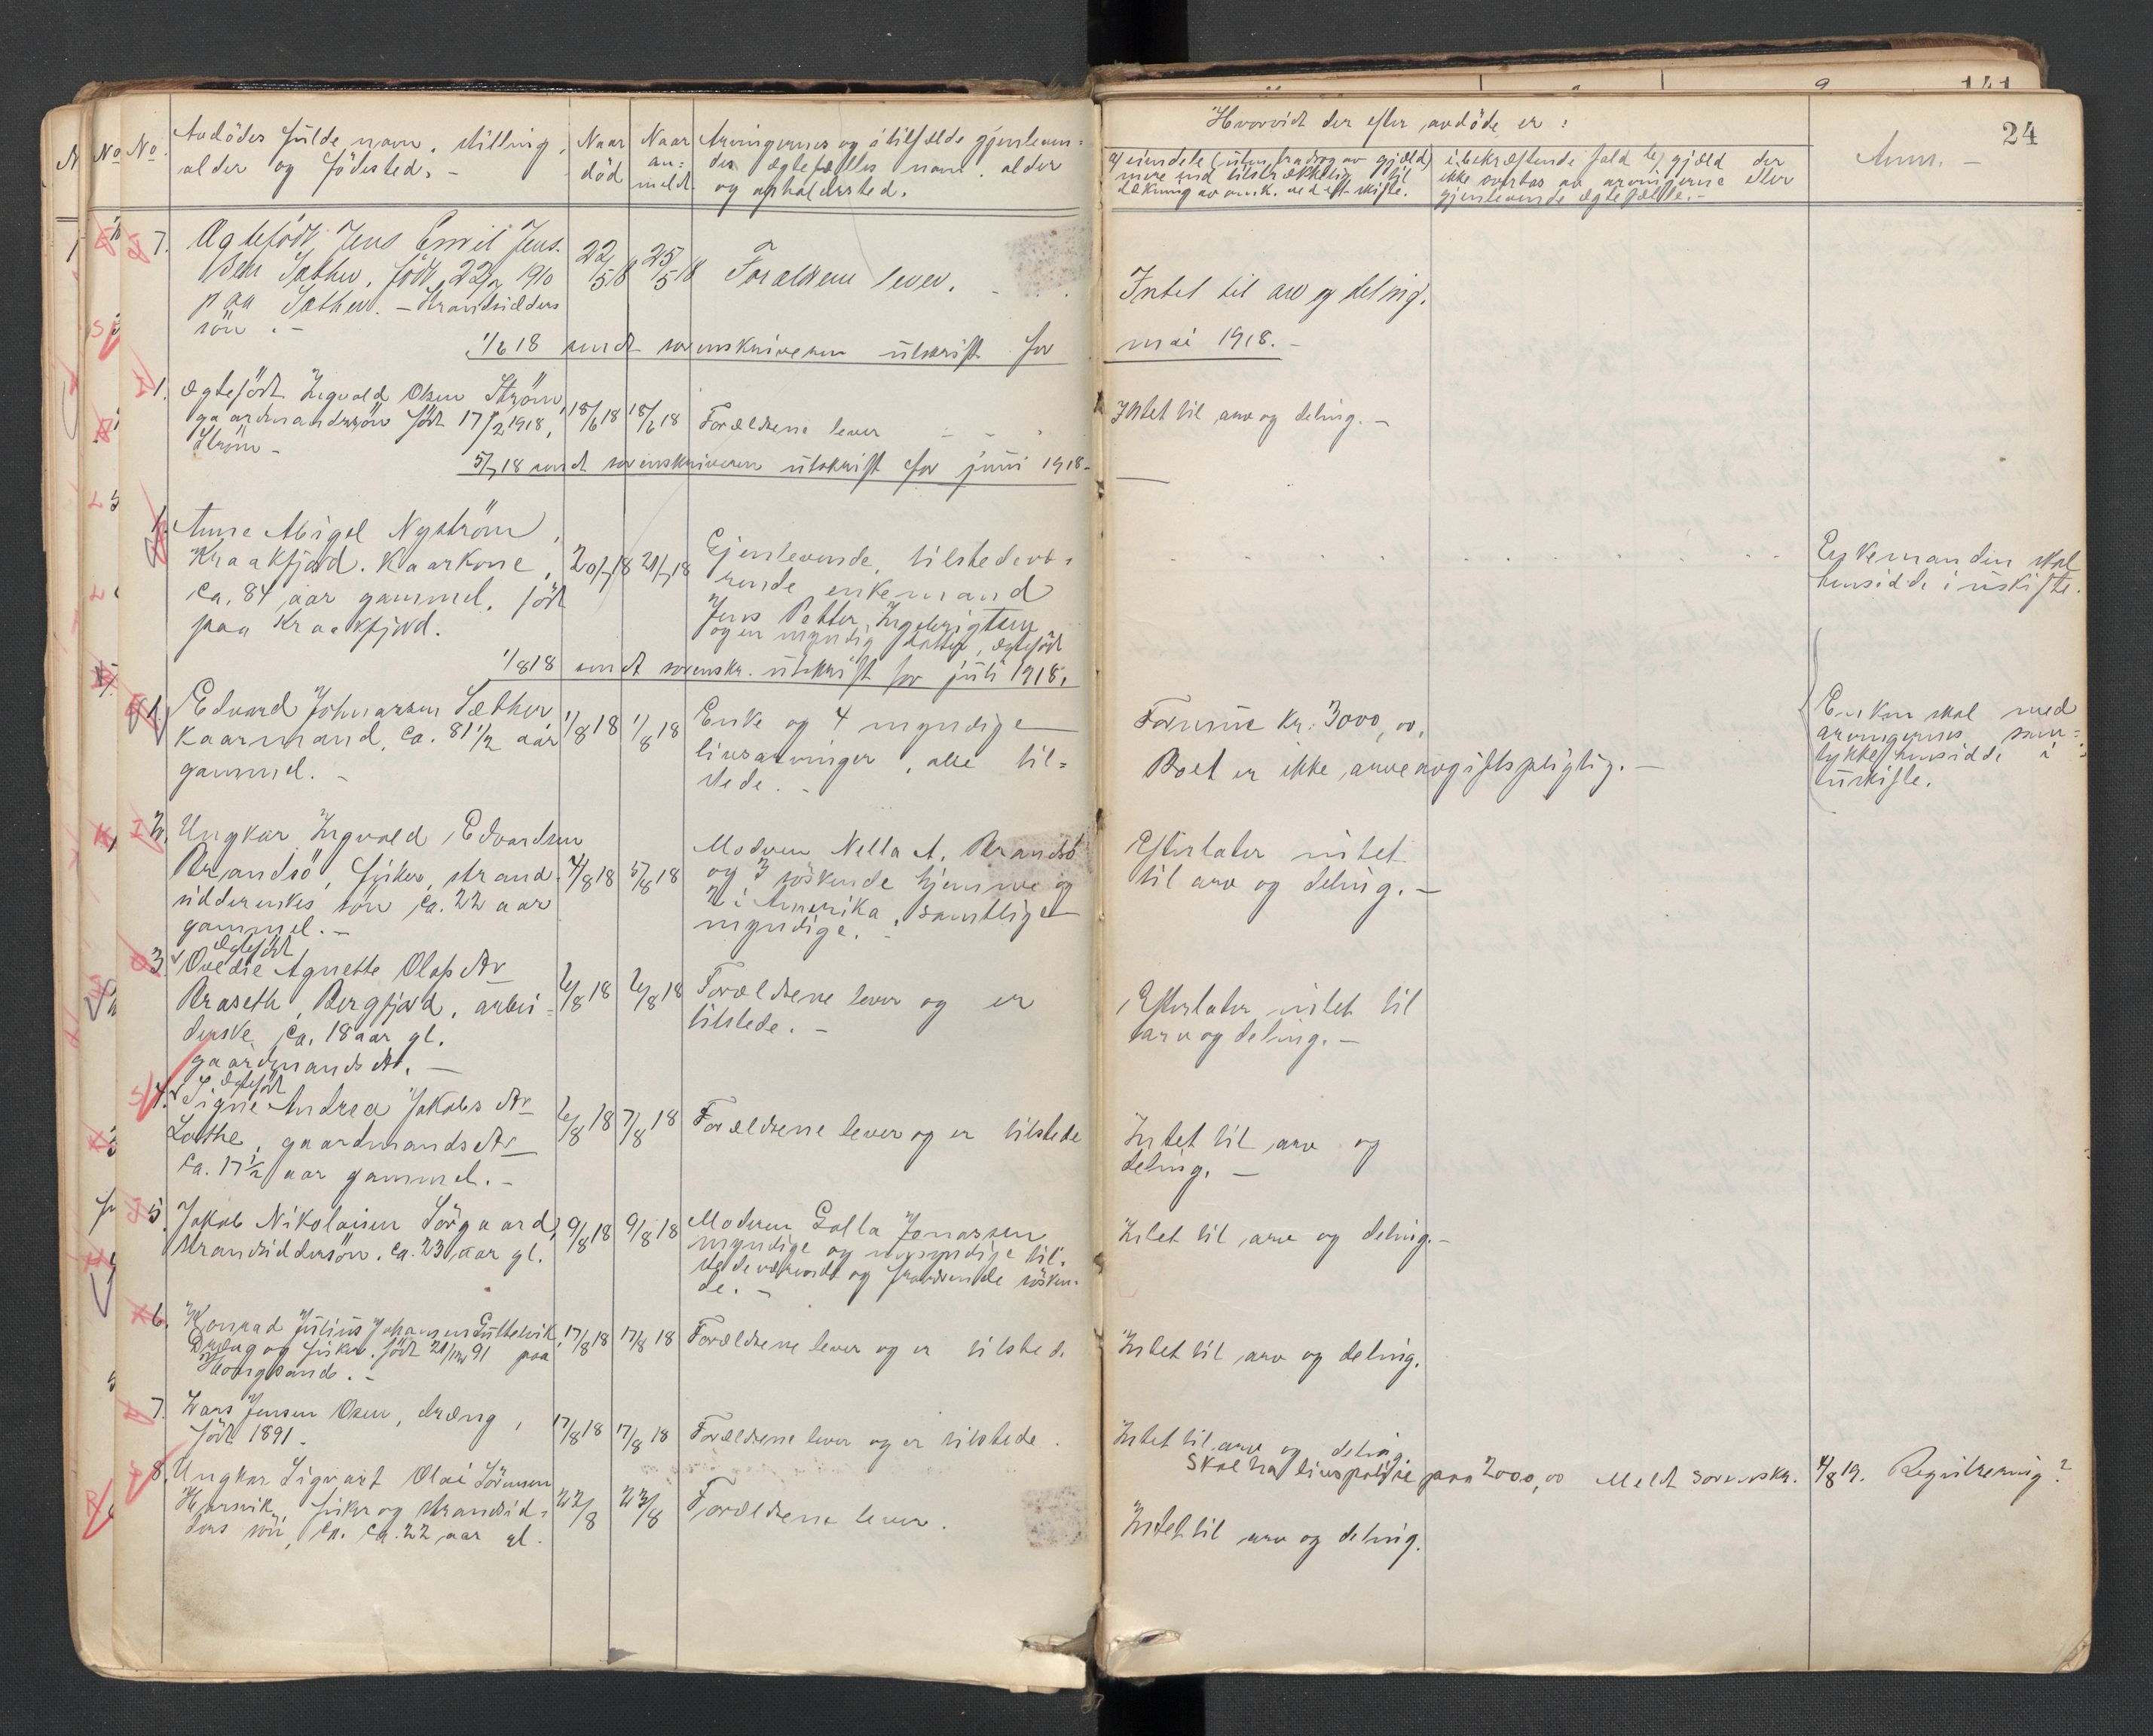 No.
Avdödes fulde navn, stilling,
alder og födested. -
Naar
död
Naar
an=
meldt
Arvingernes og i tilfælde gjenleven=
des ægtefælles navn, alder
og opholdssted.
Hvorvidt der efter avdöde er:
a) eiendele (uten fradrag av gjæld)
mere end tilstrækkelig til
dækning av omk. ved eft. skifte.
i bekræftende fald b) gjæld der
ikke overtas av arvingerne eller
gjenlevende ægtefælle. -
Anm. -
24
7. Ægtefödt Jens Emil Jens-
sen Sæther, födt 22/2 1910
paa Sæther. - Strandsidders
sön. -
22/5 18
25/5 18
Forældrene lever.
Intet til arv og deling.
1/6 18 sendt sorenskriveren utskrift for
mai 1918. -
1. Ægtefödt Ingvald Olsen Ström,
gaardmandssön födt 17/2 1918,
Ström -
18/6 18
18/6 18
Forældrene lever
Intet til arv og deling. -
5/7 18 sendt sorenskriveren utskrift for juni 1918-
1. Anne Abigel Nyström,
Kraakfjord. Kaarkone,
ca. 84 aar gammel, födt
paa Kraakfjord.
20/7 18
21/7 18
Gjenlevende, tilstedevæ=
rende enkemand
Jens Petter Ingebrigtsen
og en myndig datter, ægtefödt
Enkemanden skal
hensidde i uskifte.
1/8 18 sendt sorenskr. utskrift for juli 1918.
1. Edvard Johnarsen Sæther
Kaarmand, ca. 81 1/2 aar
gammel. -
1/8 18
1/8 18
Enke og 4 myndige
livsarvinger, alle til=
stede. -
Formue kr. 3000,00.
Boet er ikke arveavgiftspligtig. -
Enken skal med
arvingernes sam=
tykke hensidde i
uskifte.
2. Ungkar Ingvald Edvardsen
Brandsö, fisker, strand-
sidderenkes sön ca. 22 aar
gammel. -
4/8 18
5/8 18
Moderen Nella A. Brandsö
og 3 söskende hjemme og
2 i Amerika, samtlige
myndige. -
Efterlater intet
til arv og deling. -
3. Ægtefödt
Ovedie Agnette Olafsdtr
Braseth, Bergfjord, arbei=
derske, ca. 18 aar gl.
gaardmandsdtr. -
6/8 18
6/8 18
Forældrene lever og er
tilstede. -
Efterlater intet til
arv og deling. -
4. Ægtefödt
Signe Andrea Jakobsdtr
Lothe, gaardmandsdtr
ca. 17 1/2 aar gammel. -
6/8 18
7/8 18
Forældrene lever og er tilstede
Intet til arv og
deling. -
5. Jakob Nikolaisen Sörgaard,
strandsiddersön. ca. 23 aar gl.
9/8 18
9/8 18
Moderen Golla Jonassen
myndige og umyndige til=
stedeværende og fraværende sösken=
de. -
Intet til arv og deling. -
6. Konrad Julius Johansen
Dræng og fisker. födt 21/12 91 paa
17/8 18
17/8 18
Forældrene lever og er tilstede
Intet til arv og deling.
7. Lars Jensen Osen, dræng,
födt 1891.
17/8 18
17/8 18
Forældrene lever og er tilstede.
Intet til arv og deling
Skal ha livspolise paa 2000,00 Meldt sorenskr. 4/8 19. Registrering?
8. Ungkar Sigvart Olai Sörensen
Harsvik, fisker og strandsid=
ders sön, ca. ca. 22 aar gl.
22/8
23/8
Forældrene lever.
Intet til arv og deling.